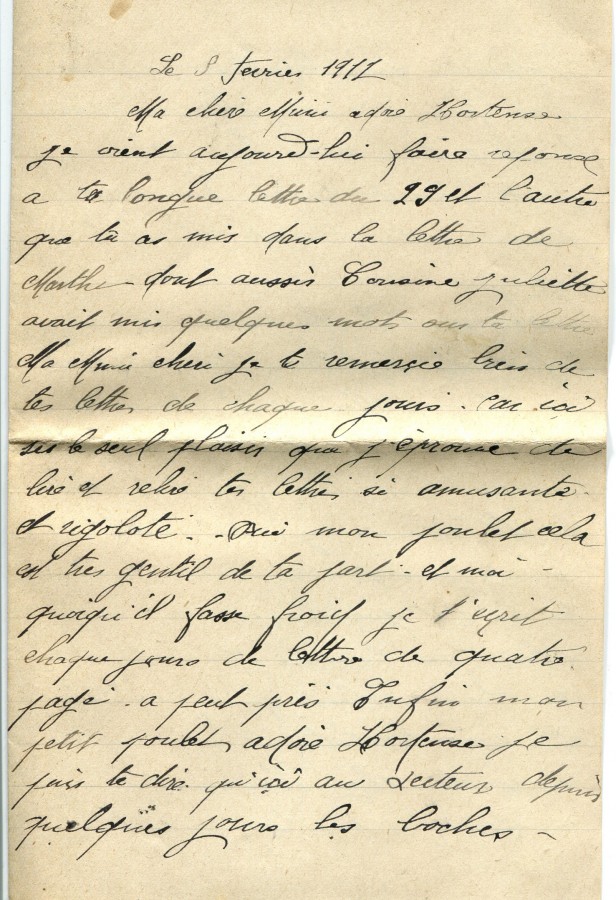 Le 8 fevrier 1917
Ma chère Mimi adoré Hortense
je vient aujourd-hui faire reponse
a ta longue lettre du 29 et l'autre
que tu as mis dans la lettre de
Marthe dont aussis Cousine juliette
avait mis quelques mots sur ta lettre
Ma Mimi cheri je te remercie bien de
tes lettres de chaque jours. car ici
ses le seul plaisir que j'éprouve de
lire et relire tes lettres si amusante.
et rigolote. - Oui mon poulet cela
est tres gentil de ta part - et moi -
quoiqu'il fasse froid je t'ecrit
chaque jours de lettre de quatre
page. a peut près Enfin mon
petit poulet adoré Hortense je
puis te dire qu'ici au secteur depuis
quelques jours les boches -